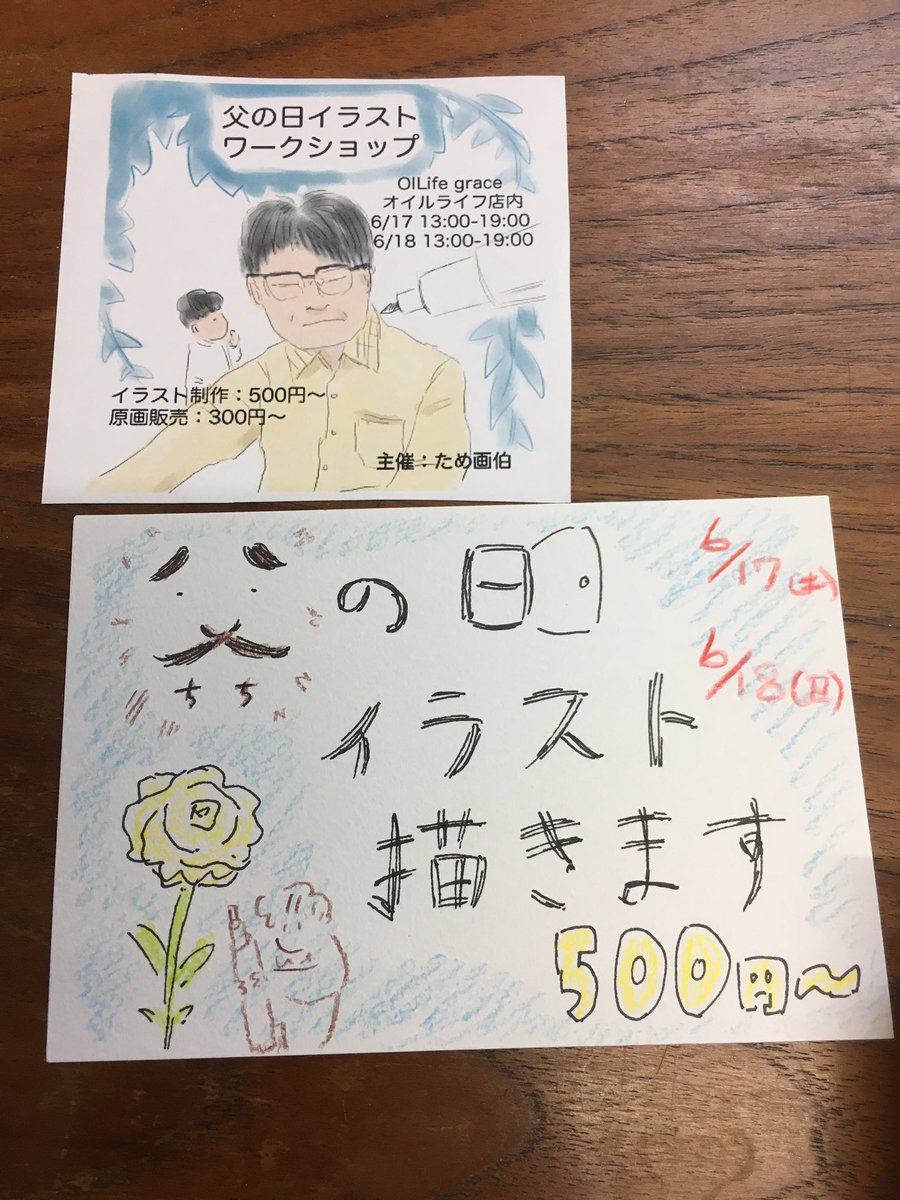 父の日イラスト
ワークショップ
OILife grace
オイルライフ店内
6/17 13:00-19:00
6/18 13:00-19:00
イラスト制作：500円〜
原画販売：300円〜
主催：ため画伯
父の日
ちち
イラスト
描きます
500円〜
6/17(土)
6/18(日)